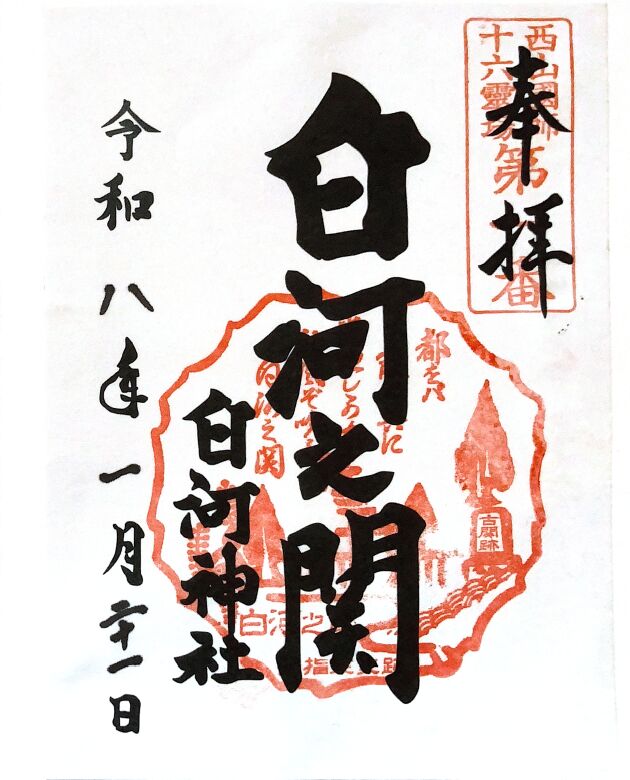 西山國師
十六靈場
第 番
奉拝
白河之関
都をば
白河之関
古關跡
白河之
指
白河神社
令和八年一月二十一日